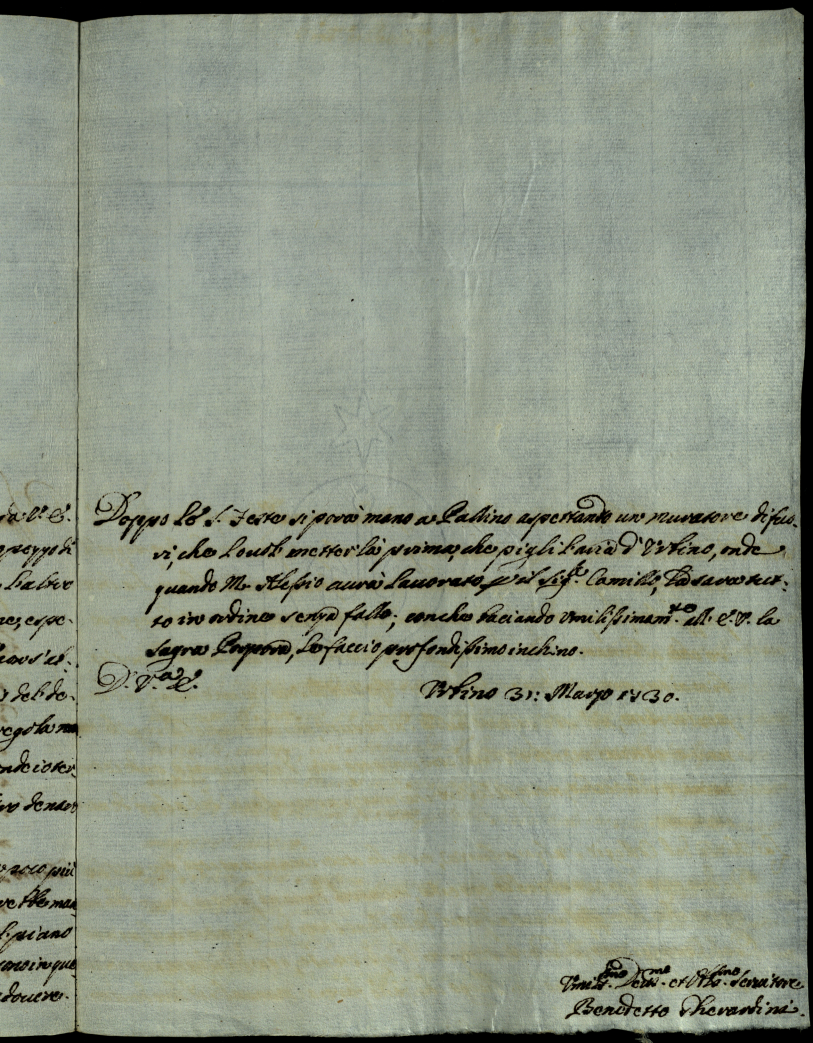 da V. E.
a pezzo di
l'altro
nes, espe-
del de-
regola non
ndeioter
ro denaro
poco più
piano
in que
dovere.
Doppo le S. Feste si porrà mano a Pallino aspettando un muratore di fuo-
ri, che lo vuol metter là prima, che pigli l'aria d'Urbino, onde
quando Mr Alessio aurà lavorato per il Sigr. Camillo, sarà tut-
to in ordine senza fallo; con che baciando umilissimamte. all' E. V. la
Sagra Porpora, le faccio profondissimo inchino.
D. V.a E.
Urbino 31: Marzo 1730.
Umilmo. Devmo. et Obbmo. Servitore
Benedetto Gherardini.